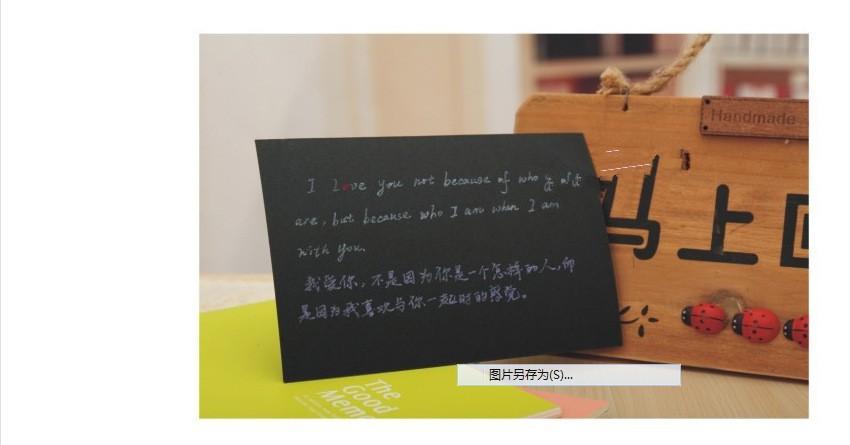 I Love you not because of who
are, but because who I am when I am
with you.
我爱你，不是因为你是一个怎样的人，而
是因为我喜欢与你一起时的感觉。
Handmade
马上回
The
Good
Memo
图片另存为(S)...